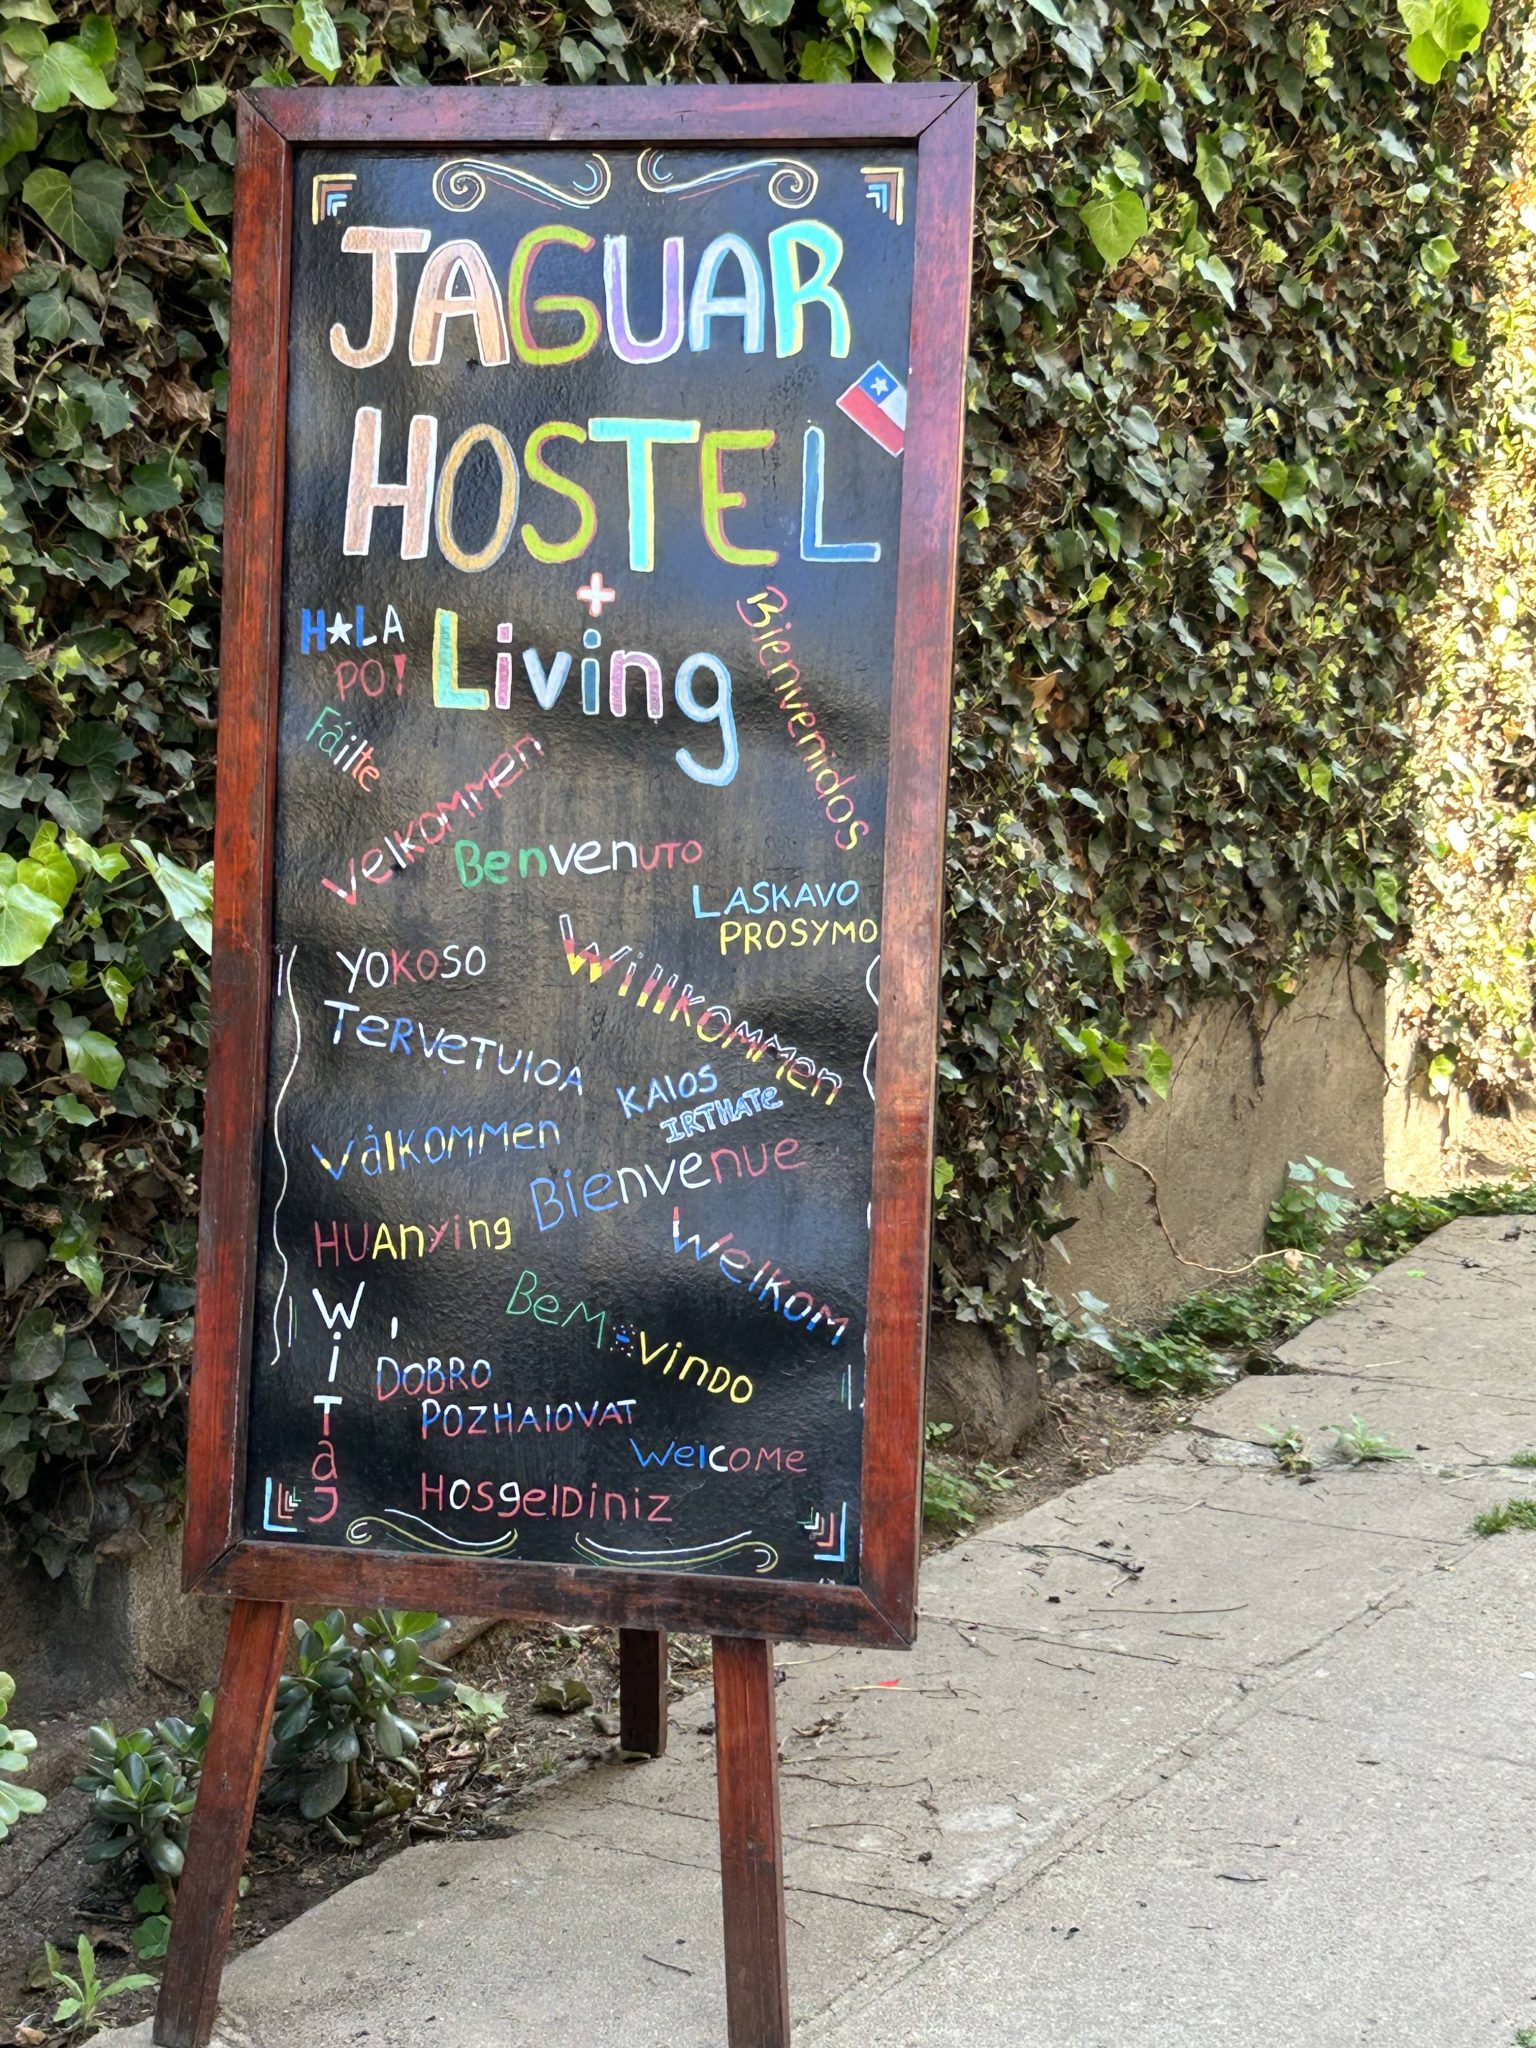 JAGUAR
HOSTEL
+
Living
H★LA
PO!
Bienvenidos
Fáilte
Velkommen
Benvenuto
LASKAVO
PROSYMO
YOKOSO
Willkommen
TERVETULOA
KALOS
IRTHATE
Välkommen
Bienvenue
HUAnying
Welkom
Bem-vindo
WiTaJ
DOBRO
POZHALOVAT
Welcome
HosgelDiniz